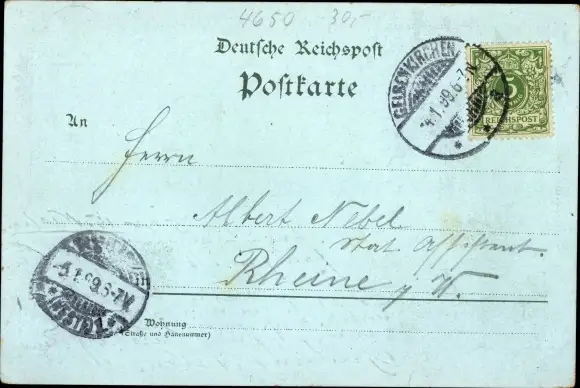 4650 30,-
Deutsche Reichspost
Postkarte
GELSENKIRCHEN
4.1.99.6-7N.
5
REICHSPOST
An
Herrn
Albert Nebel
Stat. Assistent.
Rheine i/W.
5.1.99.6-7V.
(WESTF.)
Wohnung
(Straße und Hausnummer)